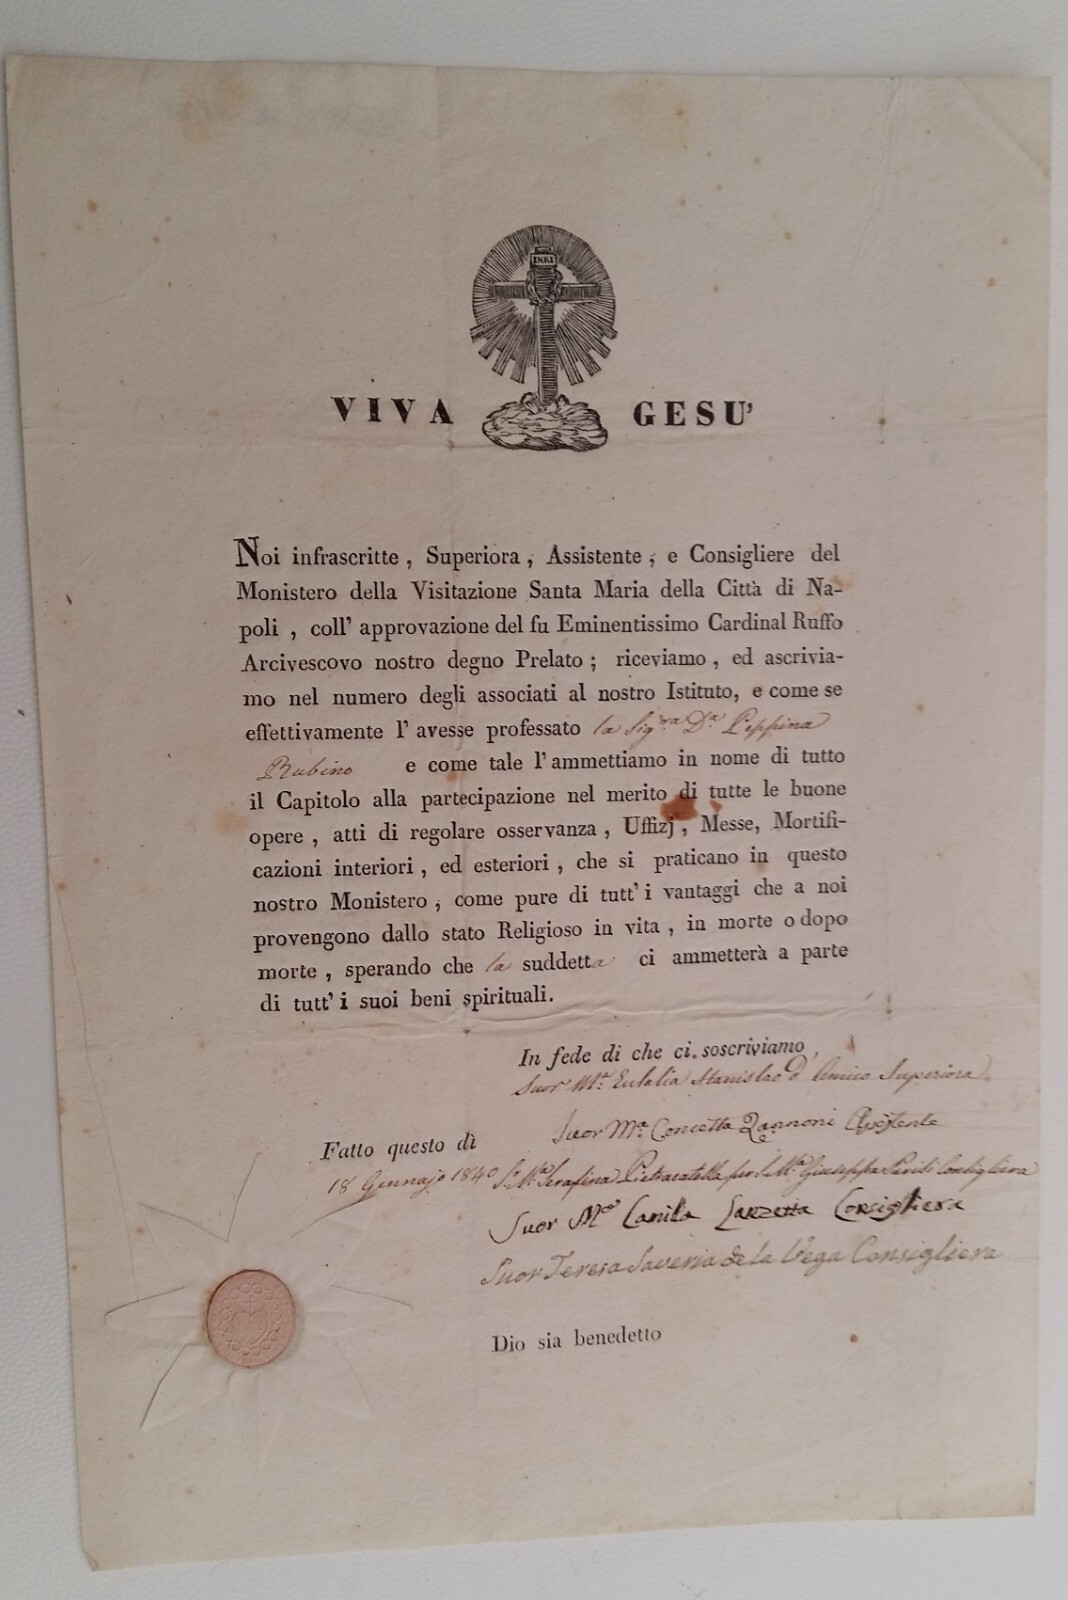 INRI
VIVA GESU'
Noi infrascritte, Superiora, Assistente, e Consigliere del
Monistero della Visitazione Santa Maria della Città di Na-
poli, coll' approvazione del fu Eminentissimo Cardinal Ruffo
Arcivescovo nostro degno Prelato; riceviamo, ed ascrivia-
mo nel numero degli associati al nostro Istituto, e come se
effettivamente l' avesse professato la Sig.ra D.a Peppina
Rubino e come tale l' ammettiamo in nome di tutto
il Capitolo alla partecipazione nel merito di tutte le buone
opere, atti di regolare osservanza, Uffizj, Messe, Mortifi-
cazioni interiori, ed esteriori, che si praticano in questo
nostro Monistero, come pure di tutt' i vantaggi che a noi
provengono dallo stato Religioso in vita, in morte o dopo
morte, sperando che la suddetta ci ammetterà a parte
di tutt' i suoi beni spirituali.
In fede di che ci soscriviamo,
Suor M.a Eulalia Stanislao d'Amico Superiora
Suor M.a Concetta Zannoni Assistente
Fatto questo dì
18 Gennajo 1840
S. M.a Serafina Pietracatella per S. M.a Giuseppa Consigliera
Suor M.a Camila Lanzetta Consigliera
Suor Teresa Saveria de la Vega Consigliera
Dio sia benedetto